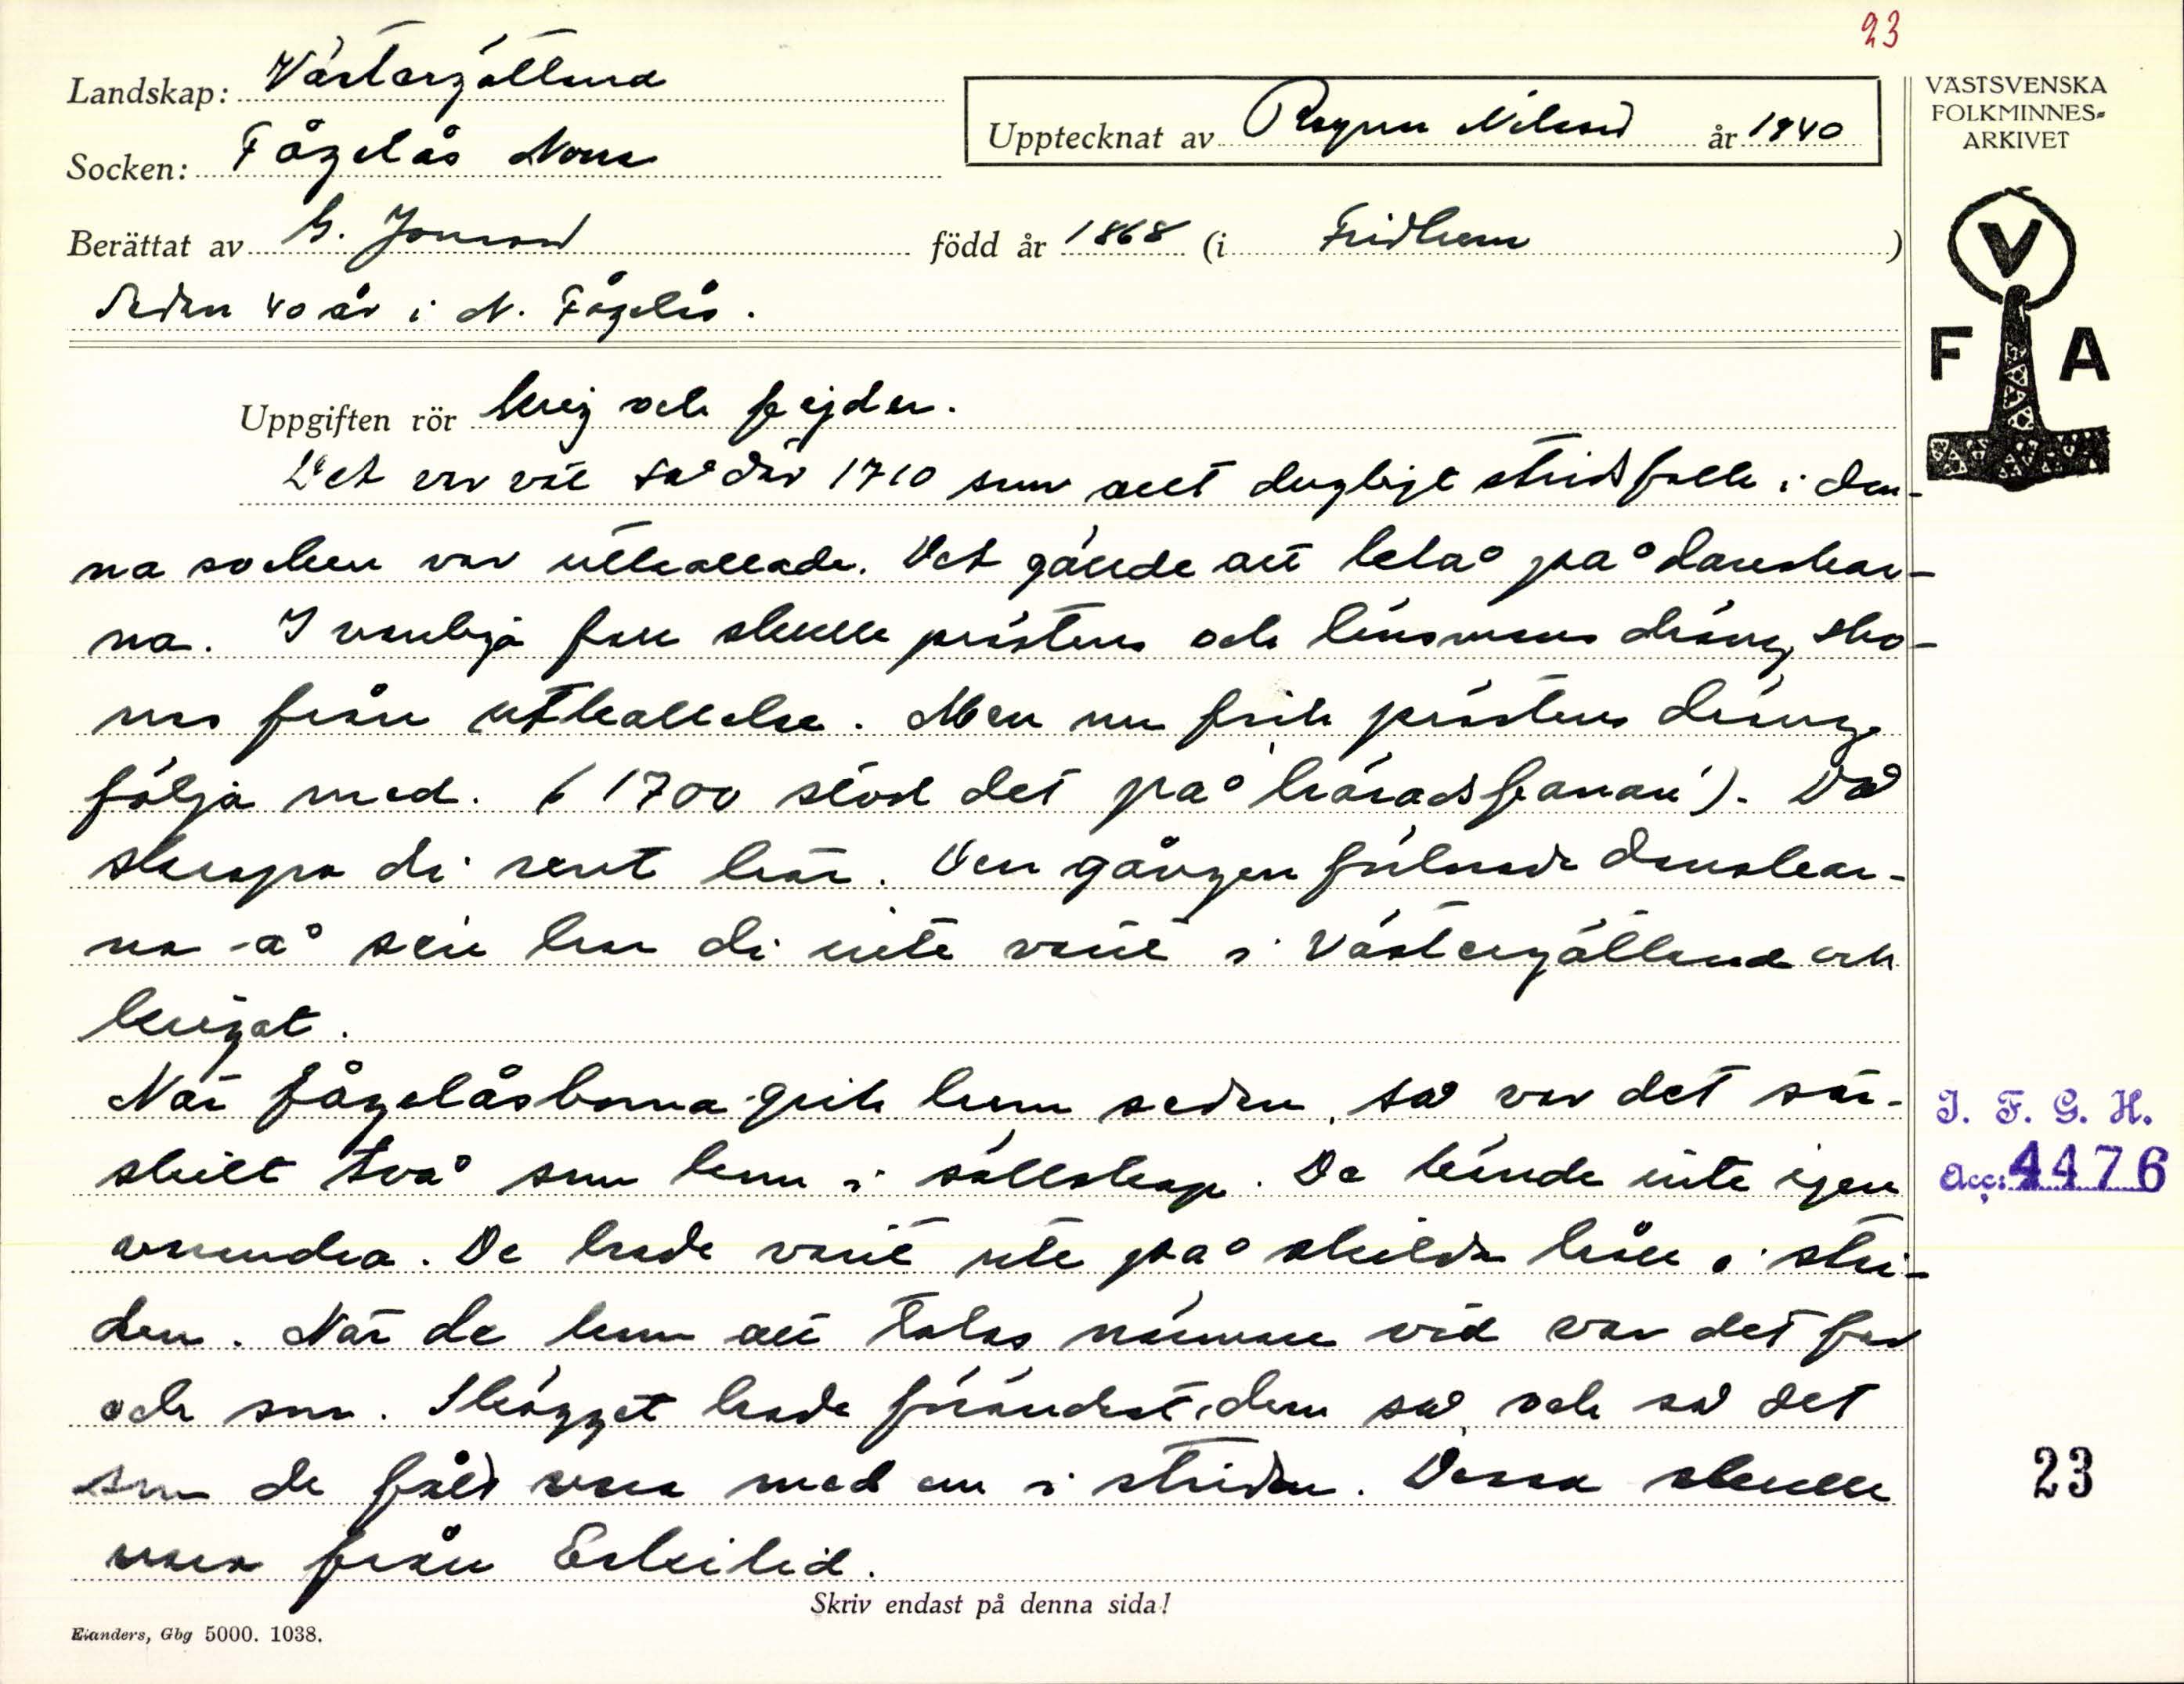 23
Landskap: Västergötland
Socken: Fågelås Norra
Upptecknat av Ragnar Nilsson år 1940
VÄSTSVENSKA
FOLKMINNES-
ARKIVET
Berättat av G. Jonsson född år 1868 (i Fridhem)
Sedan 40 år i N. Fågelås.
V
F A
Uppgiften rör Krig och fejder.
Det var väl så där 1710 som allt dugligt stridsfolk i den-
na socken var utkallade. Det gällde att leta på danskar-
na. I vanliga fall skulle prästens och länsmans dräng sko-
nas från utkallelse. Men nu fick prästens dräng
följa med. (1700 stod det på häradsfanan). Då
skrapa di rent här. Den gången fälnade danskar-
na -å sen har di inte varit i Västergötland och
krigat.
När fågelåsborna gick hem sedan, så var det sär-
skilt två som kom i sällskap. De kände inte igen
varandra. De hade varit ute på skilda håll i stri-
den. När de kom att talas närmare vid var det far
och son. Skägget hade förändrat dem så, och så det
som de fått vara med om i striden. Dessa skulle
vara från Eskilid.
J. F. G. H.
Acc: 4476
23
Skriv endast på denna sida!
Elanders, Gbg 5000. 1038.